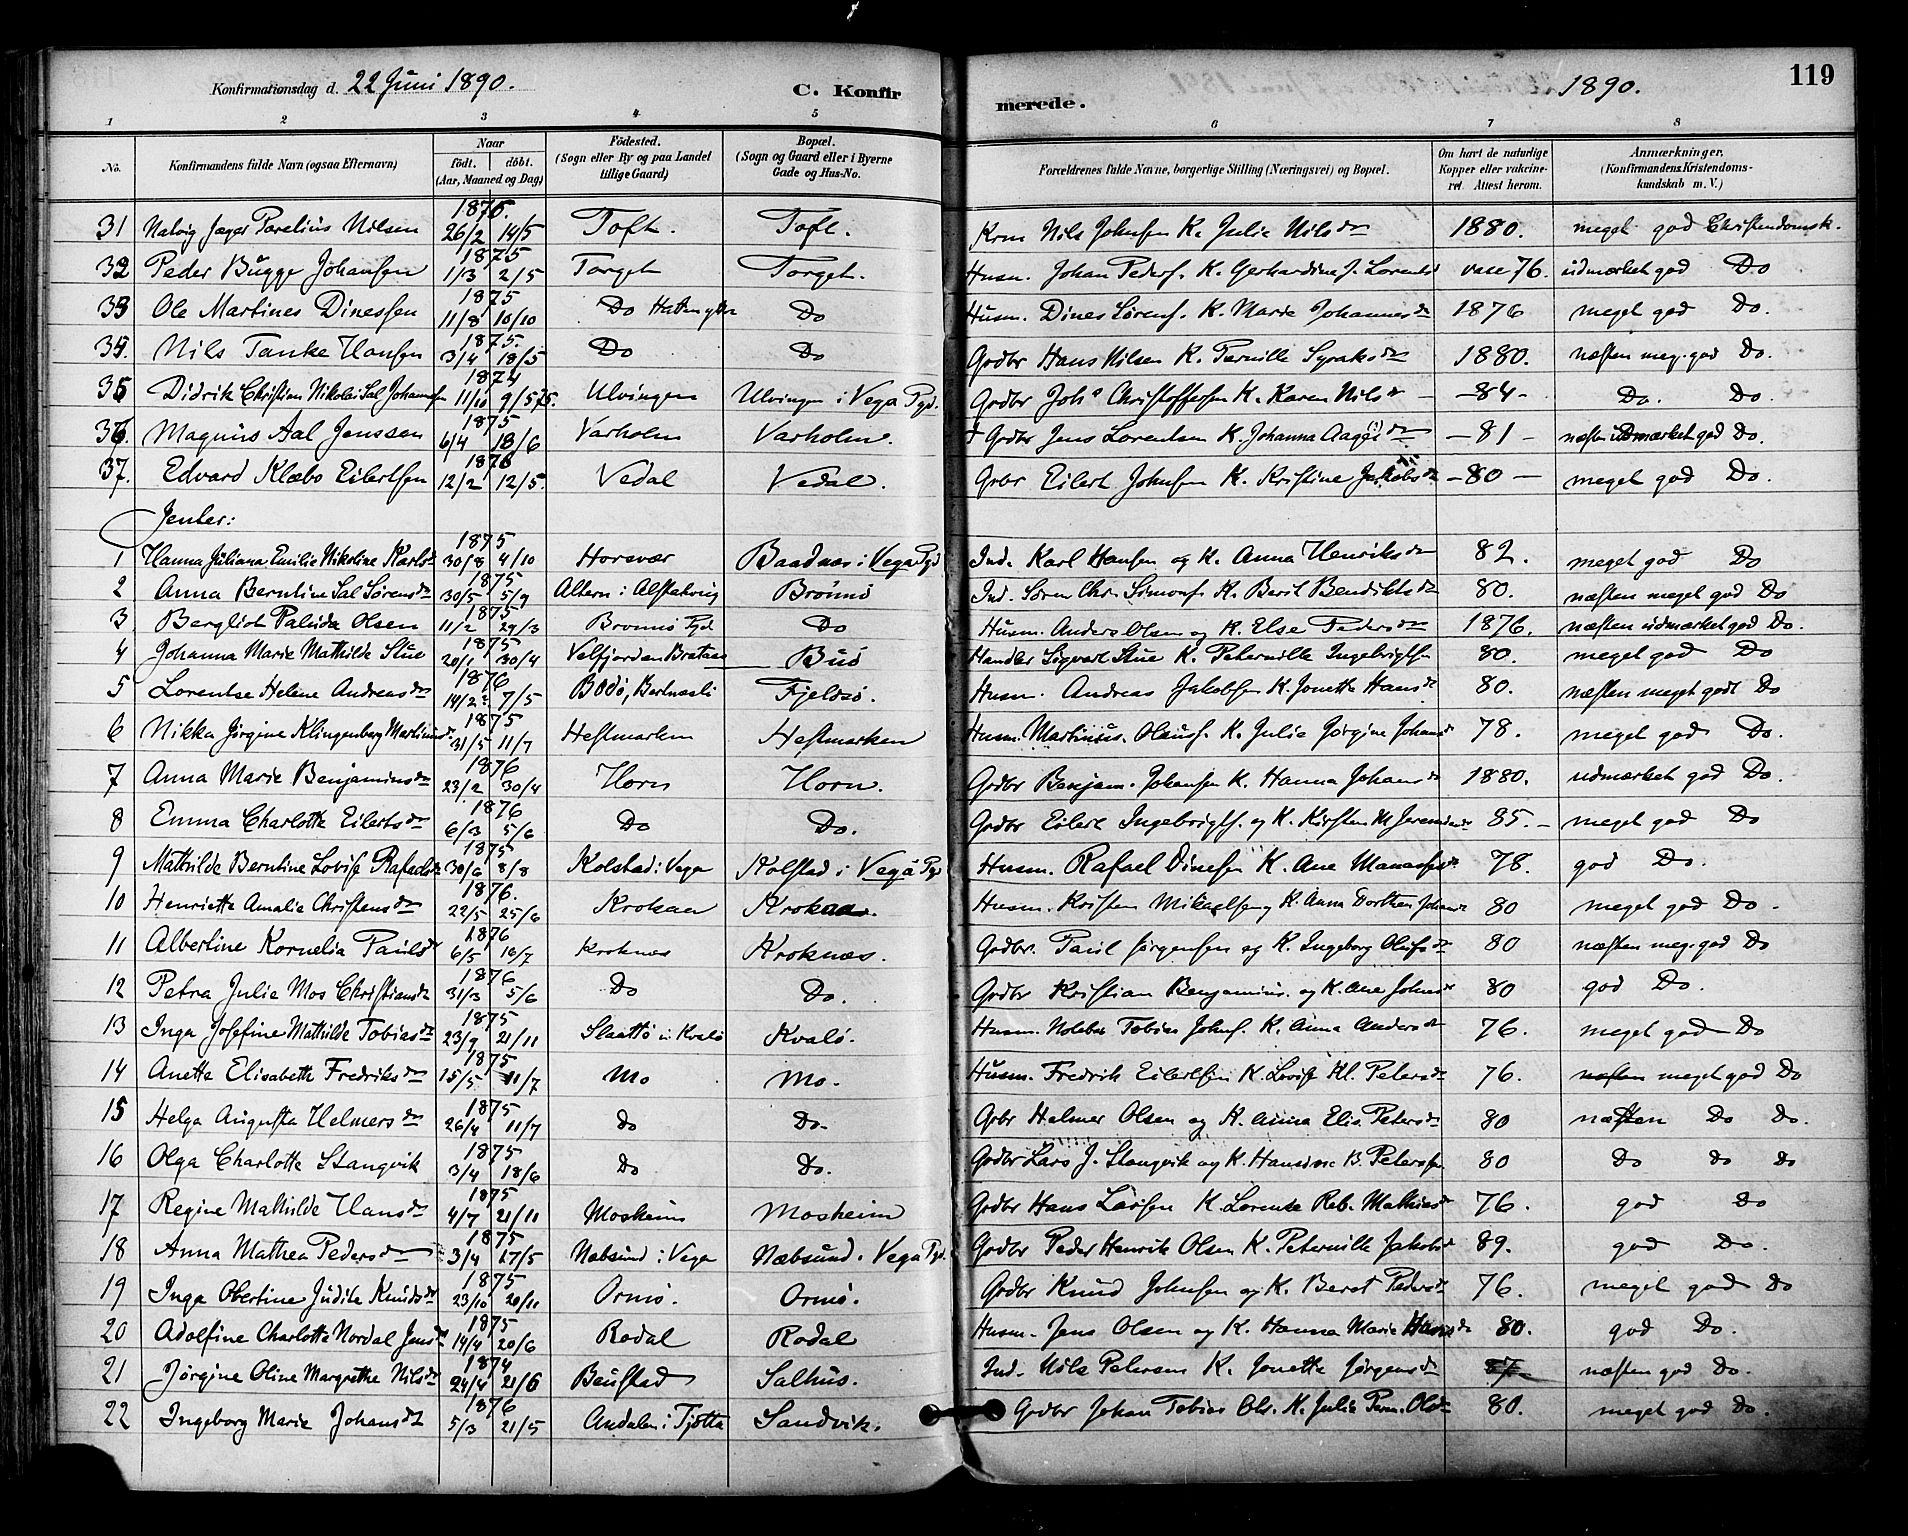 Konfirmationsdag d. 22 Juni 1890. C. Konfirmerede. 1890. 119
1 2 3 4 5 6 7 8
No. Konfirmandens fulde Navn (ogsaa Efternavn) Naar født. døbt. (Aar, Maaned og Dag) Födested. (Sogn eller By og paa Landet tillige Gaard) Bopæl. (Sogn og Gaard eller i Byerne Gade og Hus-No. Forældrenes fulde Navne, borgerlige Stilling (Næringsvei) og Bopæl. Om havt de naturlige Kopper eller vakcineret. Attest herom. Anmærkninger. (Konfirmandens Kristendomskundskab m. V.)
31 Nalvig Jæger Parelius Nilsen 1876. 26/2 14/5 Toft. Toft. Krm Nils Johnsen K. Julie Nilsdr 1880. meget god Christendomsk.
32 Peder Bugge Johansen 1875 1/3 2/5 Torget Torget. Husm. Johan Peders. K. Gerhardine J. Lorentsd vacc 76. udmærket god Do
33 Ole Martines Dinessen 1875 11/8 10/10 Do Do Husm. Dines Sørens. K. Marie Johannesdr 1876 meget god Do.
34. Nils Tanke Hansen 1875. 3/4 18/5 Do Do Grdbr Hans Nilsen K. Pernille Syraksdr 1880. næsten meg. god Do.
35 Didrik Christian Nikolai Sal Johansen 1874 11/10 9/5 75. Ulvingen Ulvingen i Vega Pgd. Grdbr Johs Christoffersen K. Karen Nilsdr - 84 - Do. Do.
36 Magnus Aal Jenssen 1875 6/4 18/6 Varholm Varholm. Grdbr Jens Lorentsen K. Johanna Aagesdr - 81 - næsten udmærket god Do.
37. Edvard Klæbo Eilertsen 1876 12/2 12/5. Vedal Vedal. Grbr Eilert Johnsen K. Kristine Jakobsdr - 80 - meget god Do.
Jenter:
1 Hanna Juliana Emilie Nikoline Karlsdr 1875 30/8 4/10 Horsvær Baadnæs i Vega Pgd Ind. Karl Hansen og K. Anna Henriksdr 82. meget god Do
2 Anna Berntine Sal Sørensdr 1875 30/5 5/9 Altern i Alstahoug Brønnø Ind. Søren Chr. Simons. K. Berit Bendiktsdr 80. næsten meget god Do
3 Bergliot Paluda Olsen 1875 11/2 29/3 Brønnø Pgd Do Husm. Anders Olsen og K. Else Pedersdr 1876. næsten udmærket god Do.
4 Johanna Marie Mathilde Stue 1875 20/1 30/4 Velfjorden Bretaas Buø Handler Sigvart Stue K. Peternille Ingebrigtsen 80. meget god Do
5 Lorentse Helene Andreasdr 1876 14/2 7/5 Bodø, Bertnesli Fjeldsø. Husm. Andreas Jakobsen K. Jonetta Hansdr 80. næsten meget godt Do
6 Nikka Jørgine Klingenberg Martinusdr 1875 31/5 11/7 Hestmarken Hestmarken Husm. Martinus Olaus. K. Julie Jørgine Johansd 78. meget god Do.
7 Anna Marie Benjaminsdr 1876 23/2 30/4 Horn Horn. Grdbr Benjam. Johansen K. Hanna Johansdr 1880. udmærket god Do.
8 Emma Charlotte Eilertsdr 1876 6/3 5/6 Do Do. Grdbr Eilert Ingebrigts. og K. Kirsten M Jeremiasdr 85. - meget god Do
9 Mathilde Berntine Lovise Rafaelsdr 1875 30/6 8/8 Kolstad i Vega Kolstad i Vega Pgd Husm. Rafael Dinesen K. Ane Manassesdr 78. god Do.
10 Henriette Amalie Christensdr 1876. 22/5 25/6 Krokaa Krokaa. Husm. Kristen Mikaelsen og K. Anna Dorthea Johansdr 80 meget god Do.
11 Albertine Kornelia Paulsdr 1876 6/5 16/7 Kroknes Kroknæs. Grdbr. Paul Jørgensen og K. Ingeborg Olufsdr 80 næsten meg. god Do
12 Petra Julie Mos Christiansdr 1876 31/3 5/6 Do Do. Grdbr Kristian Benjamins. og K. Ane Johnsdr 80 god Do.
13 Inga Josefine Mathilde Tobiasdr 1875 23/9 21/11 Slaattø i Kvalø Kvalø. Husm. Tobias Johns. K. Anna Andersdr 76. meget god Do
14 Anette Elisabeth Fredriksdr 1875 15/5 11/7 Mo Mo. Husm. Fredrik Eilertsen K. Lovise Kl. Petersdr 76. næsten meget god Do
15 Helga Augusta Helmersdr 1875 26/4 11/7 Do Do. Grbr Helmer Olsen og K. Anna Elis. Petersdr 80 næsten Do Do.
16 Olga Charlotte Stangvik 1875 3/4 18/6 Do Do. Grdbr Lars J. Stangvik og K. Hansine B. Petersen 80 Do Do Do
17 Regine Mathilde Hansdr 1875 4/7 21/11 Mosheim Mosheim Grdbr Hans Larsen K. Lorentse Reb. Mathiasdr 76. god Do
18 Anna Mathea Pedersdr 1875 3/4 17/5 Nabsund i Vega Næbsund i Vega Pgd. Grdbr Peder Henrik Olsen K. Peternille Jakobsd 89. god Do.
19 Inga Obertine Judith Knudsdr 1875 23/10 20/11 Ormø. Ormø. Grdbr Knud Johnsen og K. Beret Pedersdr 76. meget god Do
20 Adolfine Charlotte Nordal Jensdr 1875 14/4 20/6 Rodal Rodal Husm. Jens Olsen og K. Hanna Marie Hansdr 80. god Do.
21 Jørgine Oline Margrethe Nilsdr 1874 24/4 21/6 Beustad Salhus. Ind. Nils Petersen K. Jonetta Jørgensdr 87. næsten god Do.
22 Ingeborg Marie Johansdr 1876 5/3 21/5 Andalen i Tjøtta Sandvik. Grdbr Johan Tobias Ols. K. Julie Pern. Olsdr 80. meget god Do.